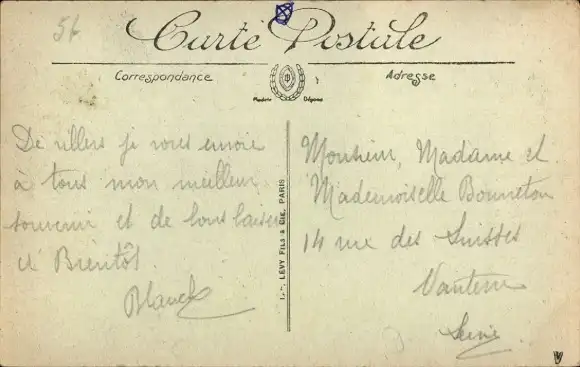 56
Carte Postale
Correspondance
Adresse
Modèle Déposé
De villers je vous envoie
à tous mon meilleur
souvenir et de bons baisers
et Bientôt
Blanche
LÉVY FILS & CIE, PARIS
Monsieur, Madame et
Mademoiselle Bonneton
14 rue des Suisses
Nanterre
Seine
V